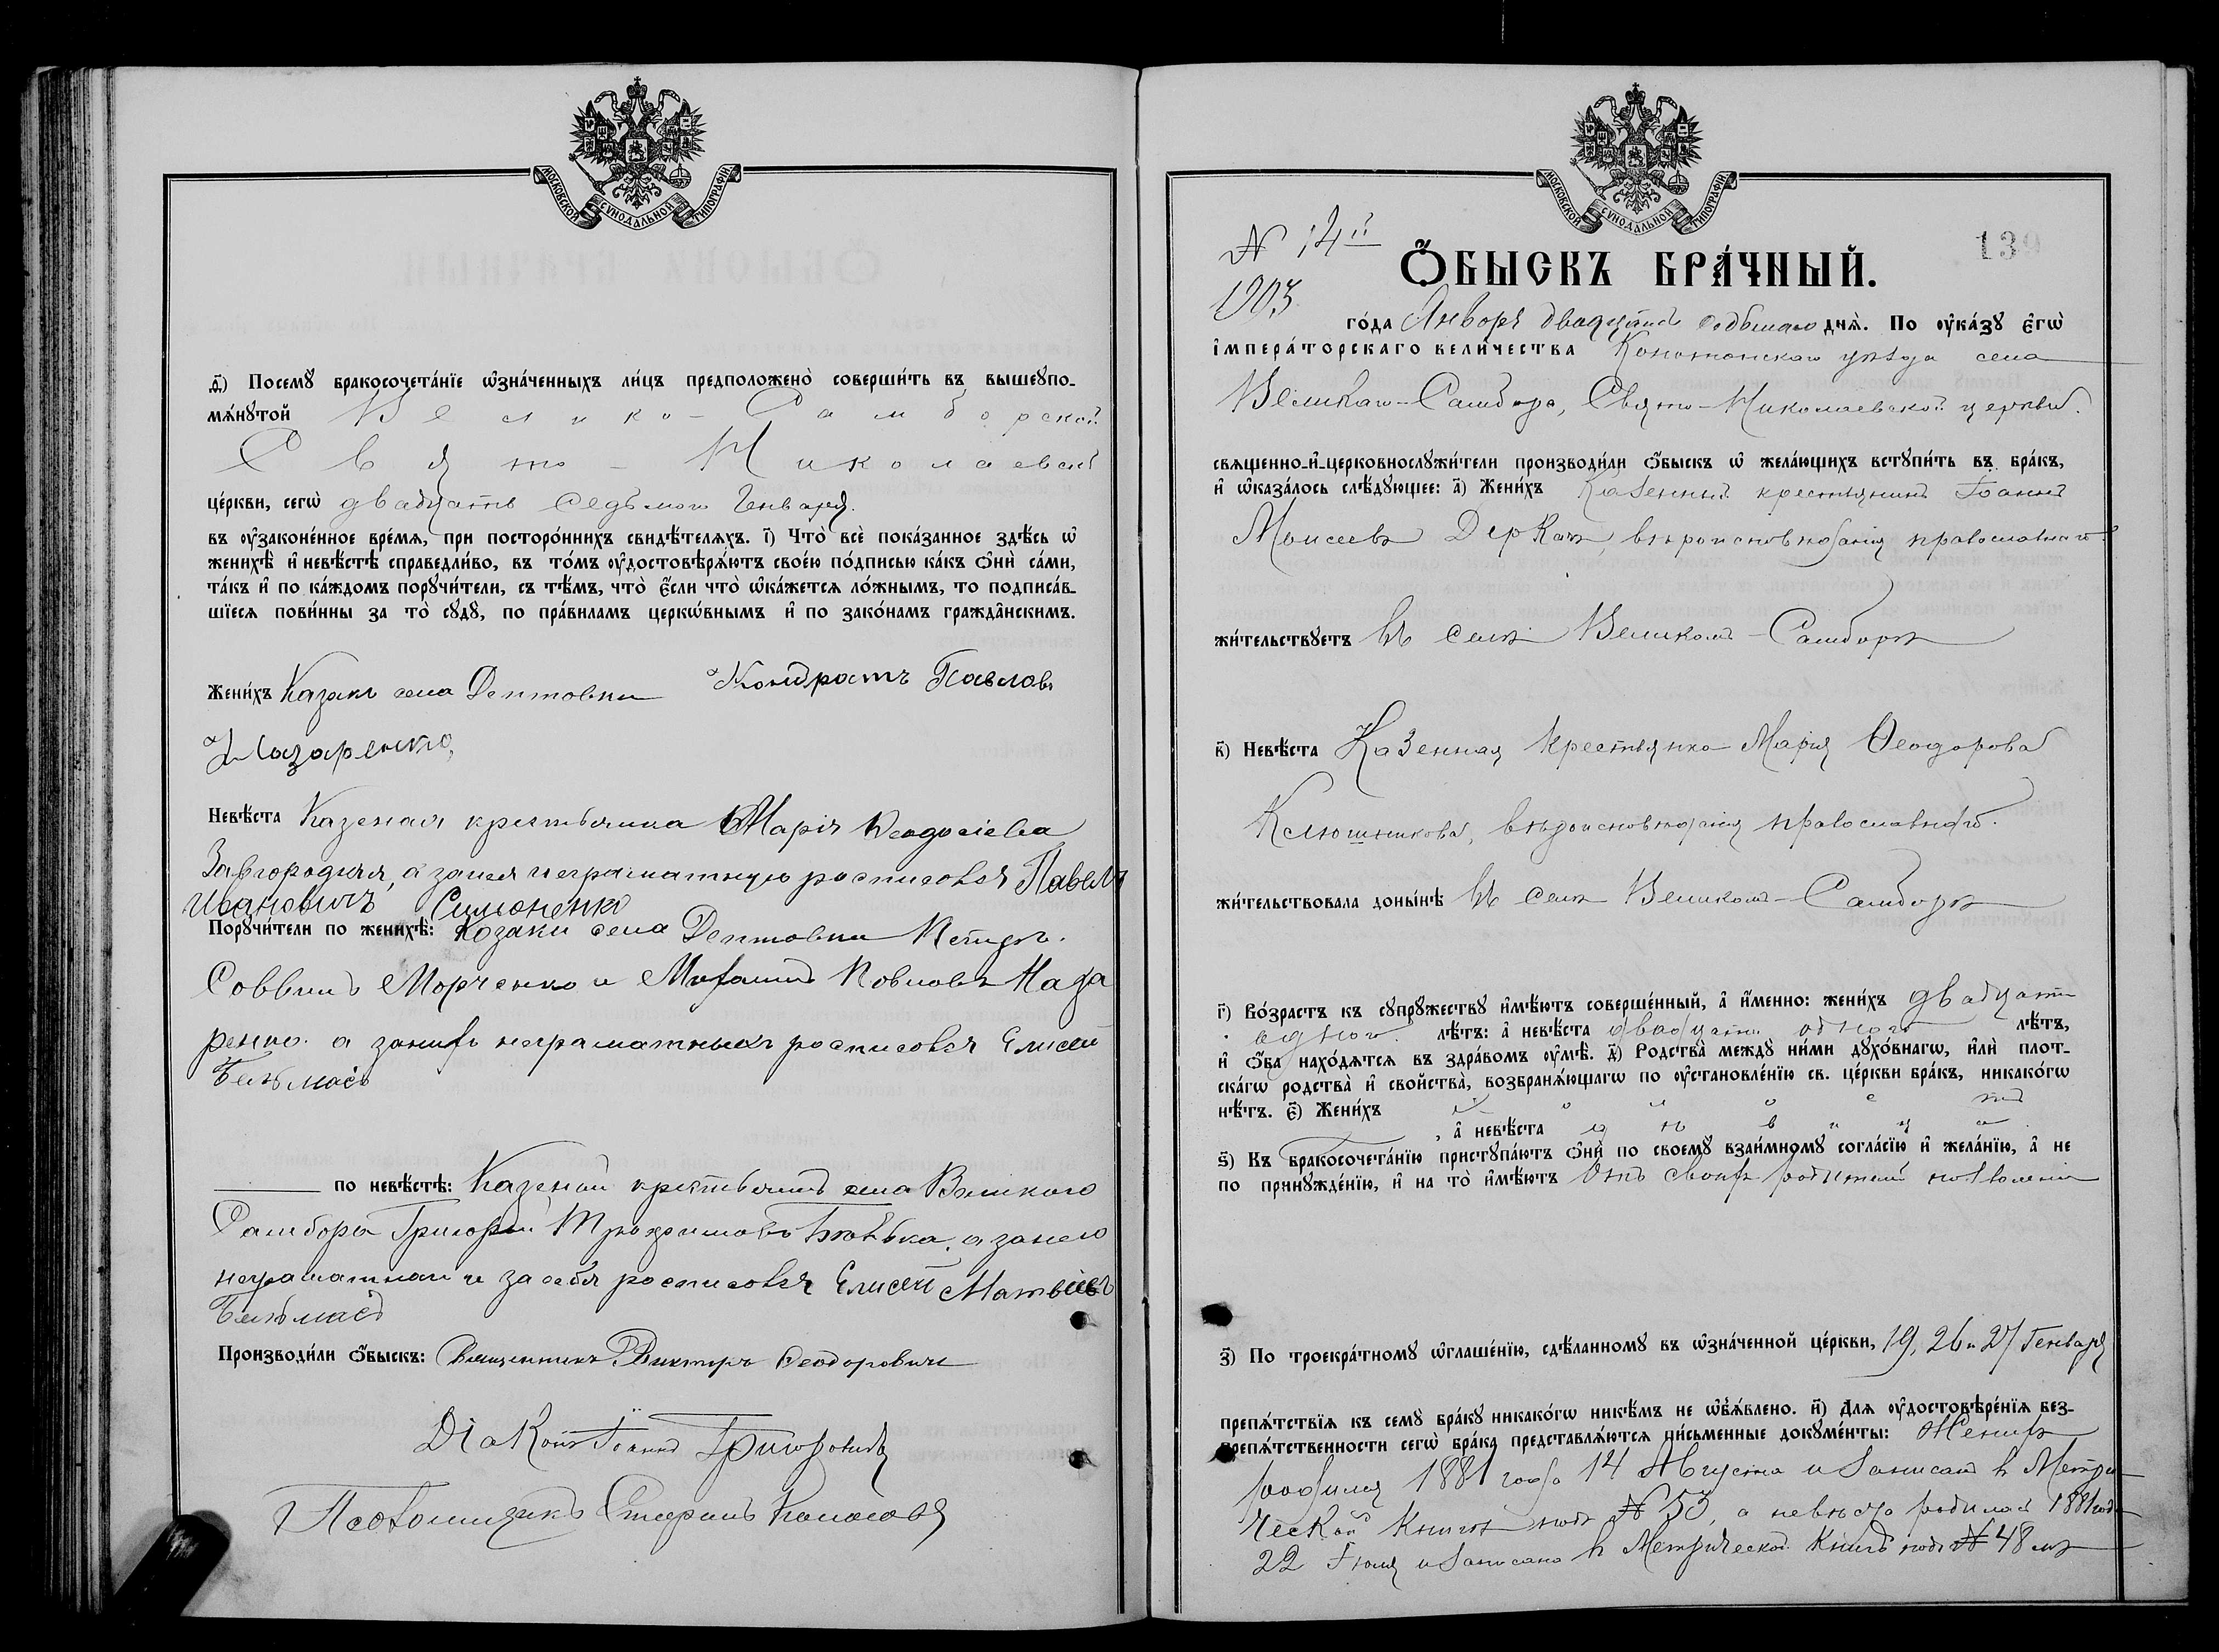 МОСКОВСКОЙ СѴНОДАЛЬНОЙ ТИПОГРАФІИ
д҃і) Посемꙋ̀ бракосочета́нїе ѡ҆зна́ченныхъ ли́цъ предположено̀ соверши́ть въ вышеꙋпо-
мѧ́нꙋтой Велико-Самборской
Свято-Николаевской
це́ркви, сегѡ̀ двадцать седьмого Генваря.
въ ᲂу҆законе́нное вре́мѧ, при посторо́ннихъ свидѣ́телѧхъ. і҃) Что̀ всѐ пока́занное здѣ́сь ѡ҆
женихѣ̀ и҆ невѣ́стѣ справедли́во, въ то́мъ ᲂу҆достовѣрѧ́ютъ свое́ю по́дписью ка́къ ѻ҆нѝ са́ми,
та́къ и҆ по ка́ждомъ порꙋчи́тели, съ тѣ́мъ, что̀ є҆́сли что̀ ѡ҆ка́жетсѧ ло́жнымъ, то подписа́в-
шїесѧ пови́нны за то̀ сꙋдꙋ̀, по пра́виламъ церкѡ́внымъ и҆ по зако́намъ гражда̂нскимъ.
Жени́хъ Казакъ села Дептовки Кондратъ Павловъ
Назаренко,
Невѣ́ста Казеная крестьянка Марія Феодосіева
Завгородняя, а занея неграматную росписовся Павелъ
Ивановичъ Симоненко
Порꙋчи́тели по женихѣ̀: Козаки села Дептовки Петръ
Соввинъ Морченко и Михаилъ Повловъ Наза
ренко. а занихъ неграматныхъ росписовся Елисей
по невѣ́стѣ: Казеной крестьянинъ села Великого
Самбора Григорій Трохимовъ а занего
неграматнаи и за себя росписовся Елисей Матвіевъ
Производи́ли ѻ҆́быскъ: Священникъ Викторъ Феодоровичъ
Діаконъ Іоаннъ Григоровичъ
Псаломщикъ Стефанъ
МОСКОВСКОЙ СѴНОДАЛЬНОЙ ТИПОГРАФІИ
№ 14й
139
Ѻ҆БЫСКЪ БРА́ЧНЫЙ.
1903
го́да Января двадцать седьмаго днѧ̀. По ᲂу҆ка́зꙋ є҆гѡ̀
і҆мпера́торскаго вели́чества Конотопскаго уѣзда села
Великаго-Самбора, Свято-Николаевской церкви.
свѧщенно-и҆-церковнослꙋжи́тели производи́ли ѻ҆́быскъ ѡ҆ жела́ющихъ встꙋпи́ть въ бра́къ,
и҆ ѡ҆каза́лось слѣ́дꙋющее: а҃) Жени́хъ Казенный крестьянинъ Іоаннъ
Моисеевъ Деркачъ, вѣроисповѣданія православнаго.
жи́тельствꙋетъ въ селѣ Великомъ-Самборѣ
в҃) Невѣ́ста Казенная крестьянка Марія Феодорова
Клюшникова, вѣроисповѣданія православнаго.
жи́тельствовала доны́нѣ въ селѣ Великомъ-Самборѣ
г҃) Во́зрастъ къ сꙋпрꙋ́жествꙋ и҆мѣ́ютъ соверше́нный, а҆ и҆́менно: жени́хъ двадцати
одного лѣ́тъ: а҆ невѣ́ста двадцати одного лѣ́тъ,
и҆ ѻ҆́ба нахо́дѧтсѧ въ здра́вомъ ᲂу҆мѣ̀. д҃) Родства̀ междꙋ̀ ни́ми дꙋхо́внагѡ, и҆лѝ плот-
ска́гѡ родства̀ и҆ свойства̀, возбранѧ́ющагѡ по ᲂу҆становле́нїю св. це́ркви бра́къ, никако́гѡ
нѣ́тъ. є҃) Жени́хъ холостъ
, а҆ невѣ́ста дѣвица
ѕ҃) Къ бракосочета́нїю пристꙋпа́ютъ ѻ҆нѝ по своемꙋ̀ взаи́мномꙋ согла́сїю и҆ жела́нїю, а҆ не
по принꙋжде́нїю, и҆ на то̀ и҆мѣ́ютъ Отъ своихъ родителей позволеніе
з҃) По троекра́тномꙋ ѡ҆глаше́нїю, сдѣ́ланномꙋ въ ѡ҆зна́ченной це́ркви, 19, 26 и 27 Генваря
препѧ́тствїѧ къ семꙋ̀ бра́кꙋ никако́гѡ никѣ́мъ не ѡ҆бъѧ́влено. и҃) Длѧ ᲂу҆достовѣре́нїѧ без-
препѧ́тственности сегѡ̀ бра́ка представлѧ́ютсѧ пи́сьменные докꙋме́нты: Женихъ
родился 1881 года 14 Августа и записанъ в Метри-
ческой книгѣ подъ № 53, а невѣста родилась 1881 года
22 Іюля и записана в Метрической книгѣ подъ № 48 мъ